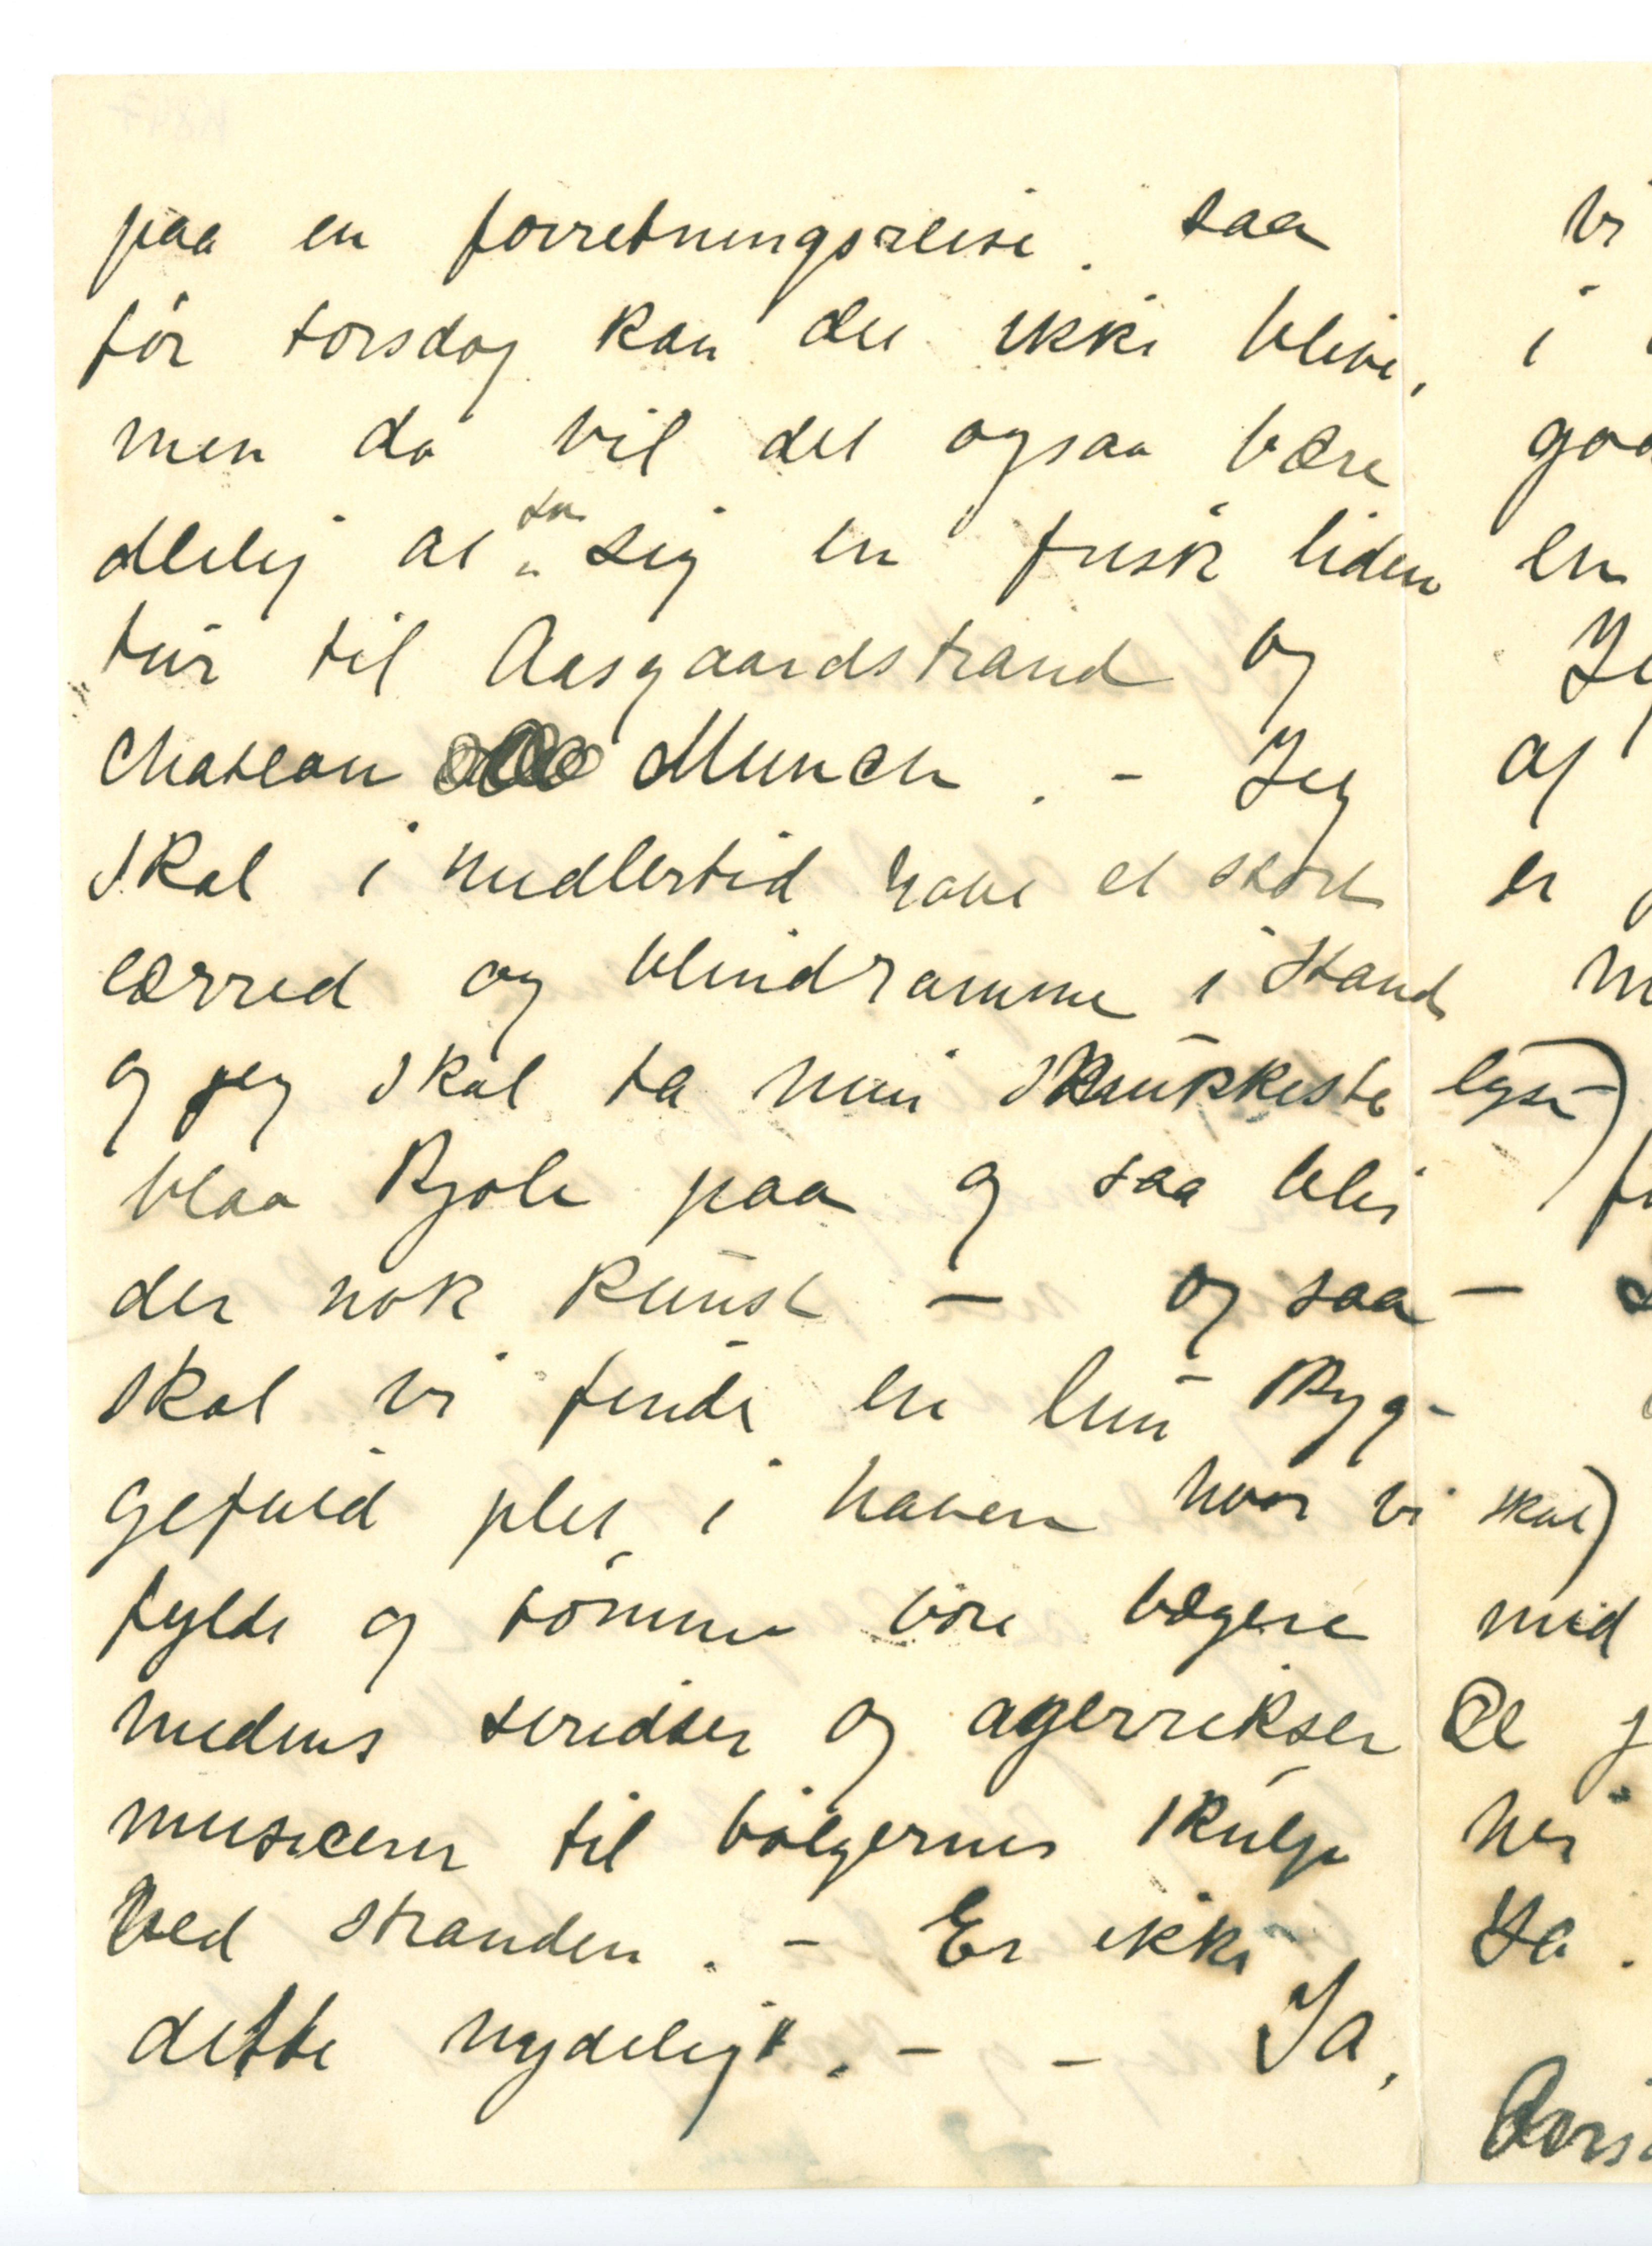 paa en forretningsreise. saa
før torsdag kan det ikke blive,
men da vil det ogsaa være
deilig at ta sig en frisk liden
tur til Aasgaardstrand og
Chateau Munch. - Jeg
skal i midlertid have et stort
lærred og blindramme i stand
og jeg skal ta min smukkeste lyse)
blaa kjole paa og saa blir
der nok kunst - og saa -
skal vi finde en lun skyg-
gefuld plet i haven hvor vi skal)
fylde og tømme vore bægere
medens siridser og agerrikser
musicerer til bølgernes skulp
ved stranden. - Er ikke
dette nydeligt. - - Ja,
vi
i
en
af
er
med
her
ta.